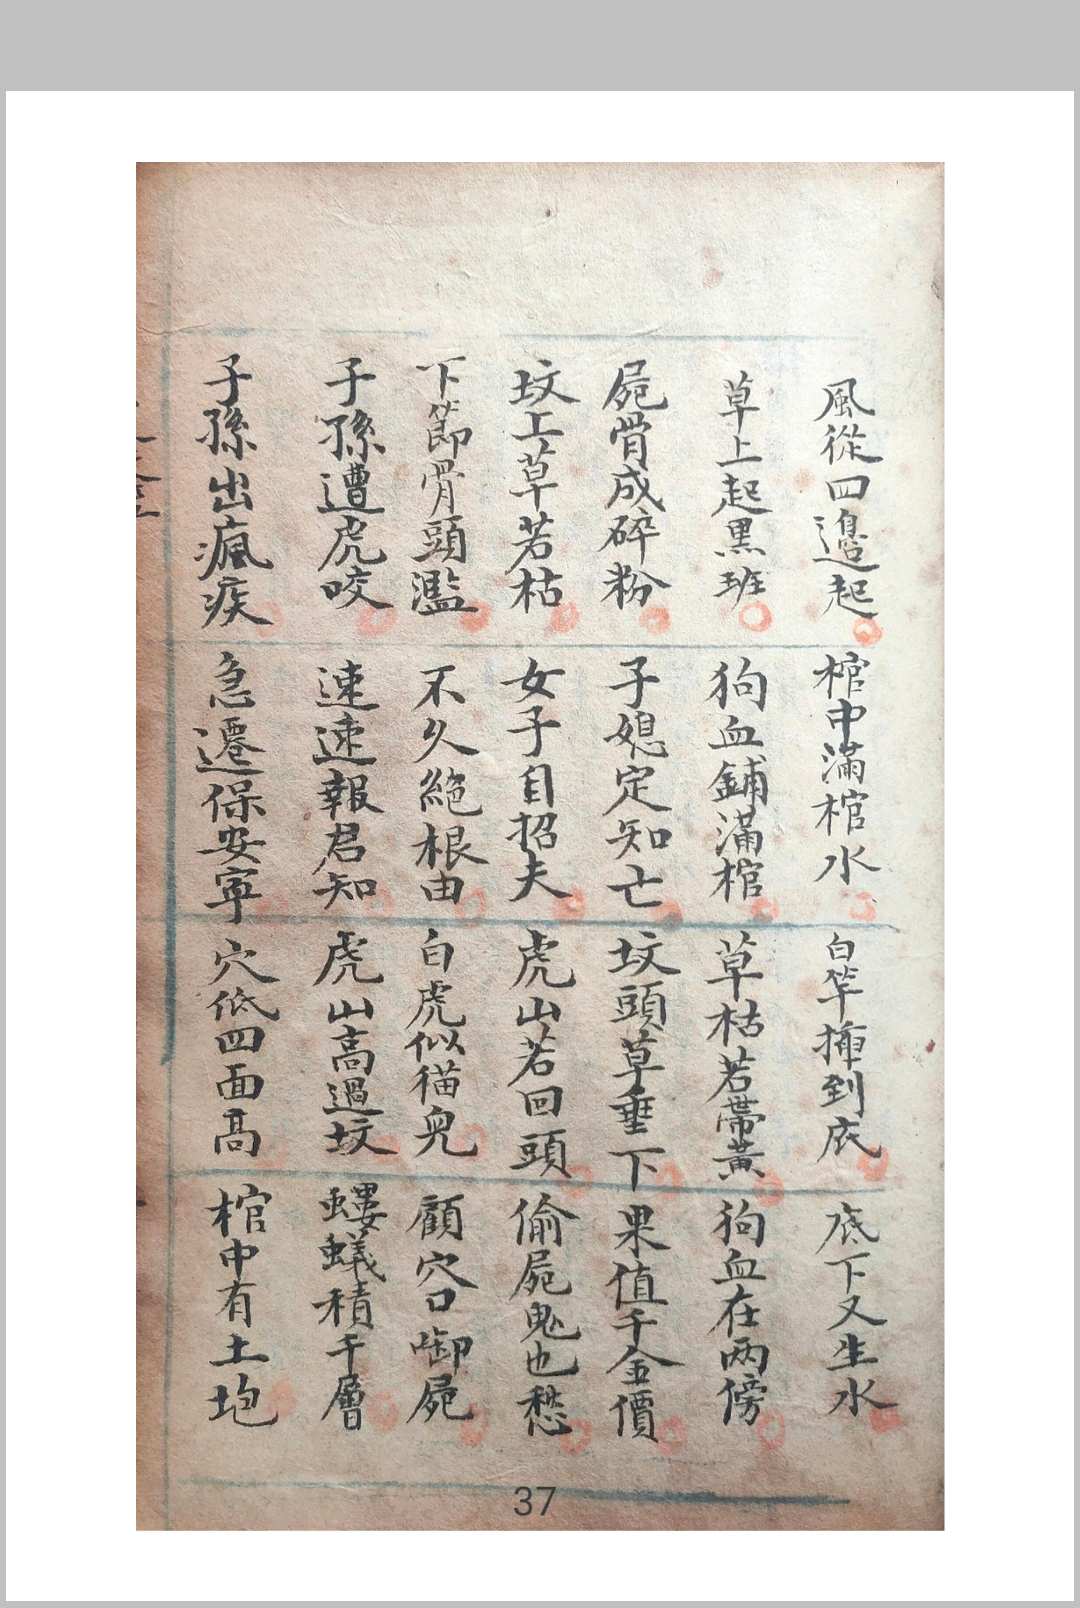 風從四邊起 棺中滿棺水 白竿揷到底 底下又生水
草上起黑班 狗血鋪滿棺 草枯若帶黃 狗血在两傍
屍骨成碎粉 子媳定知亡 坟頭草垂下 果值千金價
坟上草若枯 女子自招夫 虎山若回頭 偷屍鬼也愁
下節骨頭濫 不久絕根由 白虎似猫兒 顧穴口啣屍
子孫遭虎咬 速速報君知 虎山高過坟 螻蟻積千層
子孫出瘋疾 急遷保安寜 穴低四面高 棺中有土垉
37